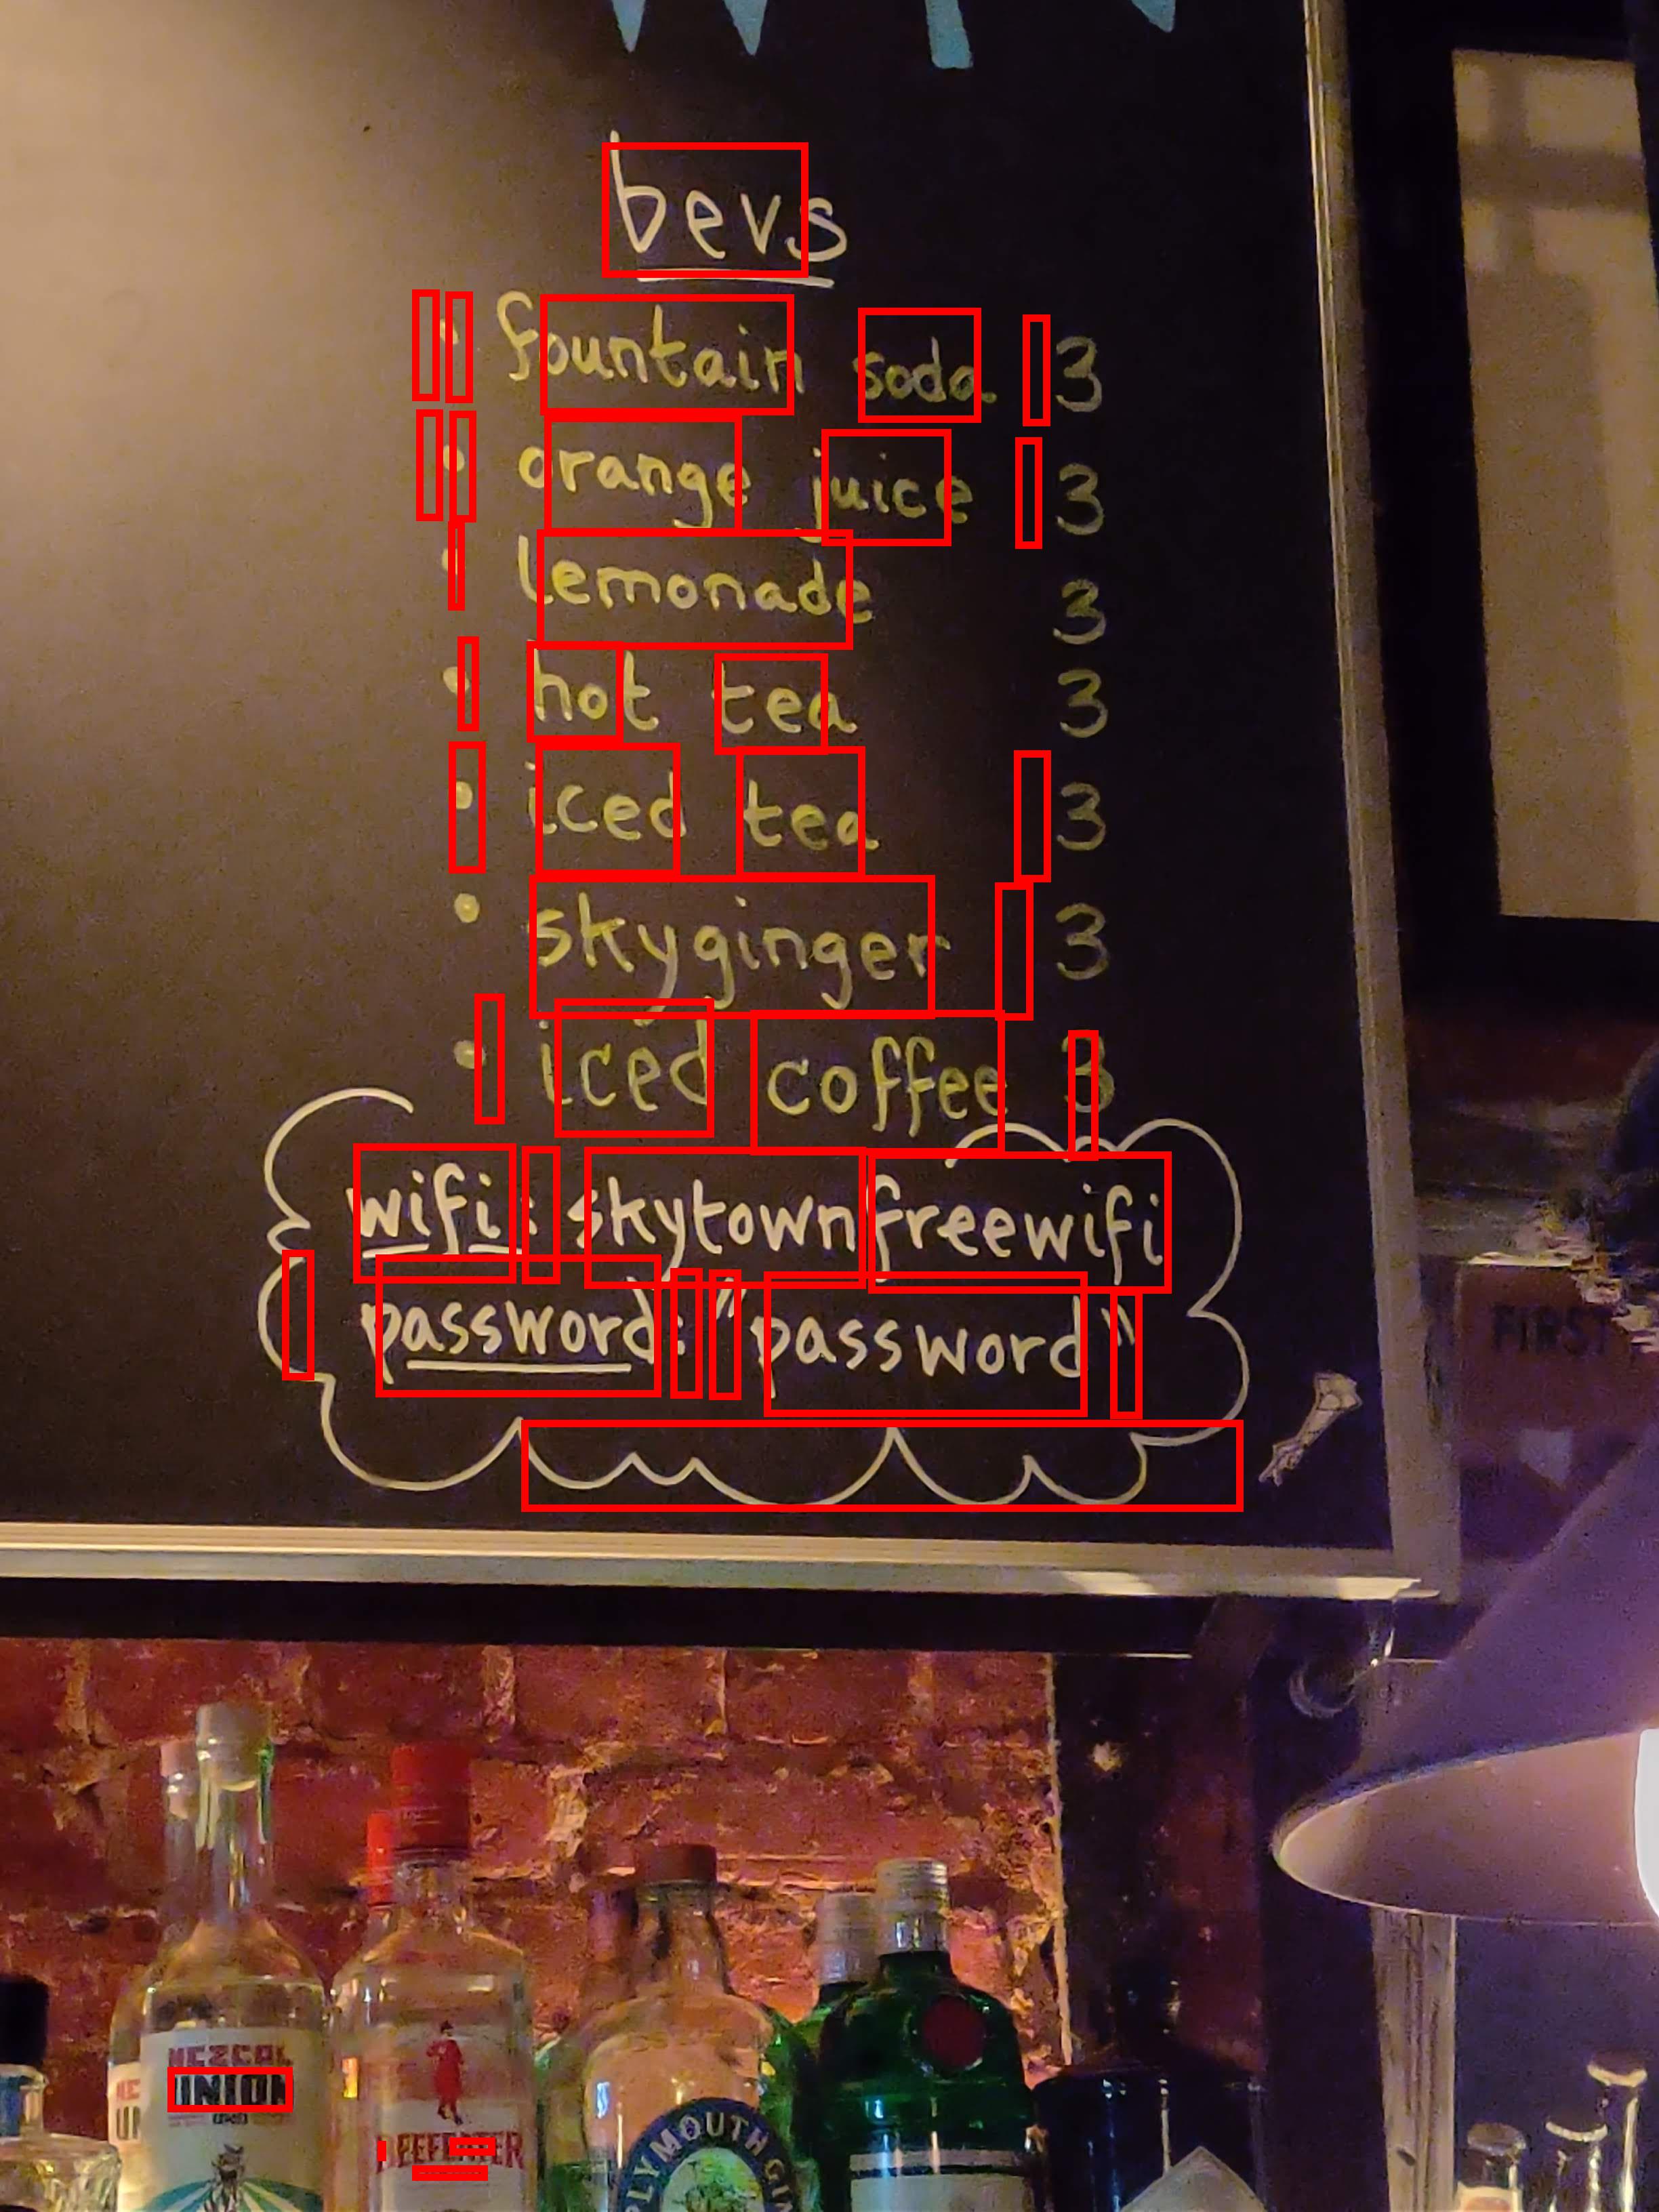 bevs
• fountain soda 3
• orange juice 3
• lemonade 3
• hot tea 3
• iced tea 3
• skyginger 3
• iced coffee 3
wifi: skytownfreewifi
password: "password"
FIRST
MEZCAL
UNION
BEEFEATER
PLYMOUTH GIN